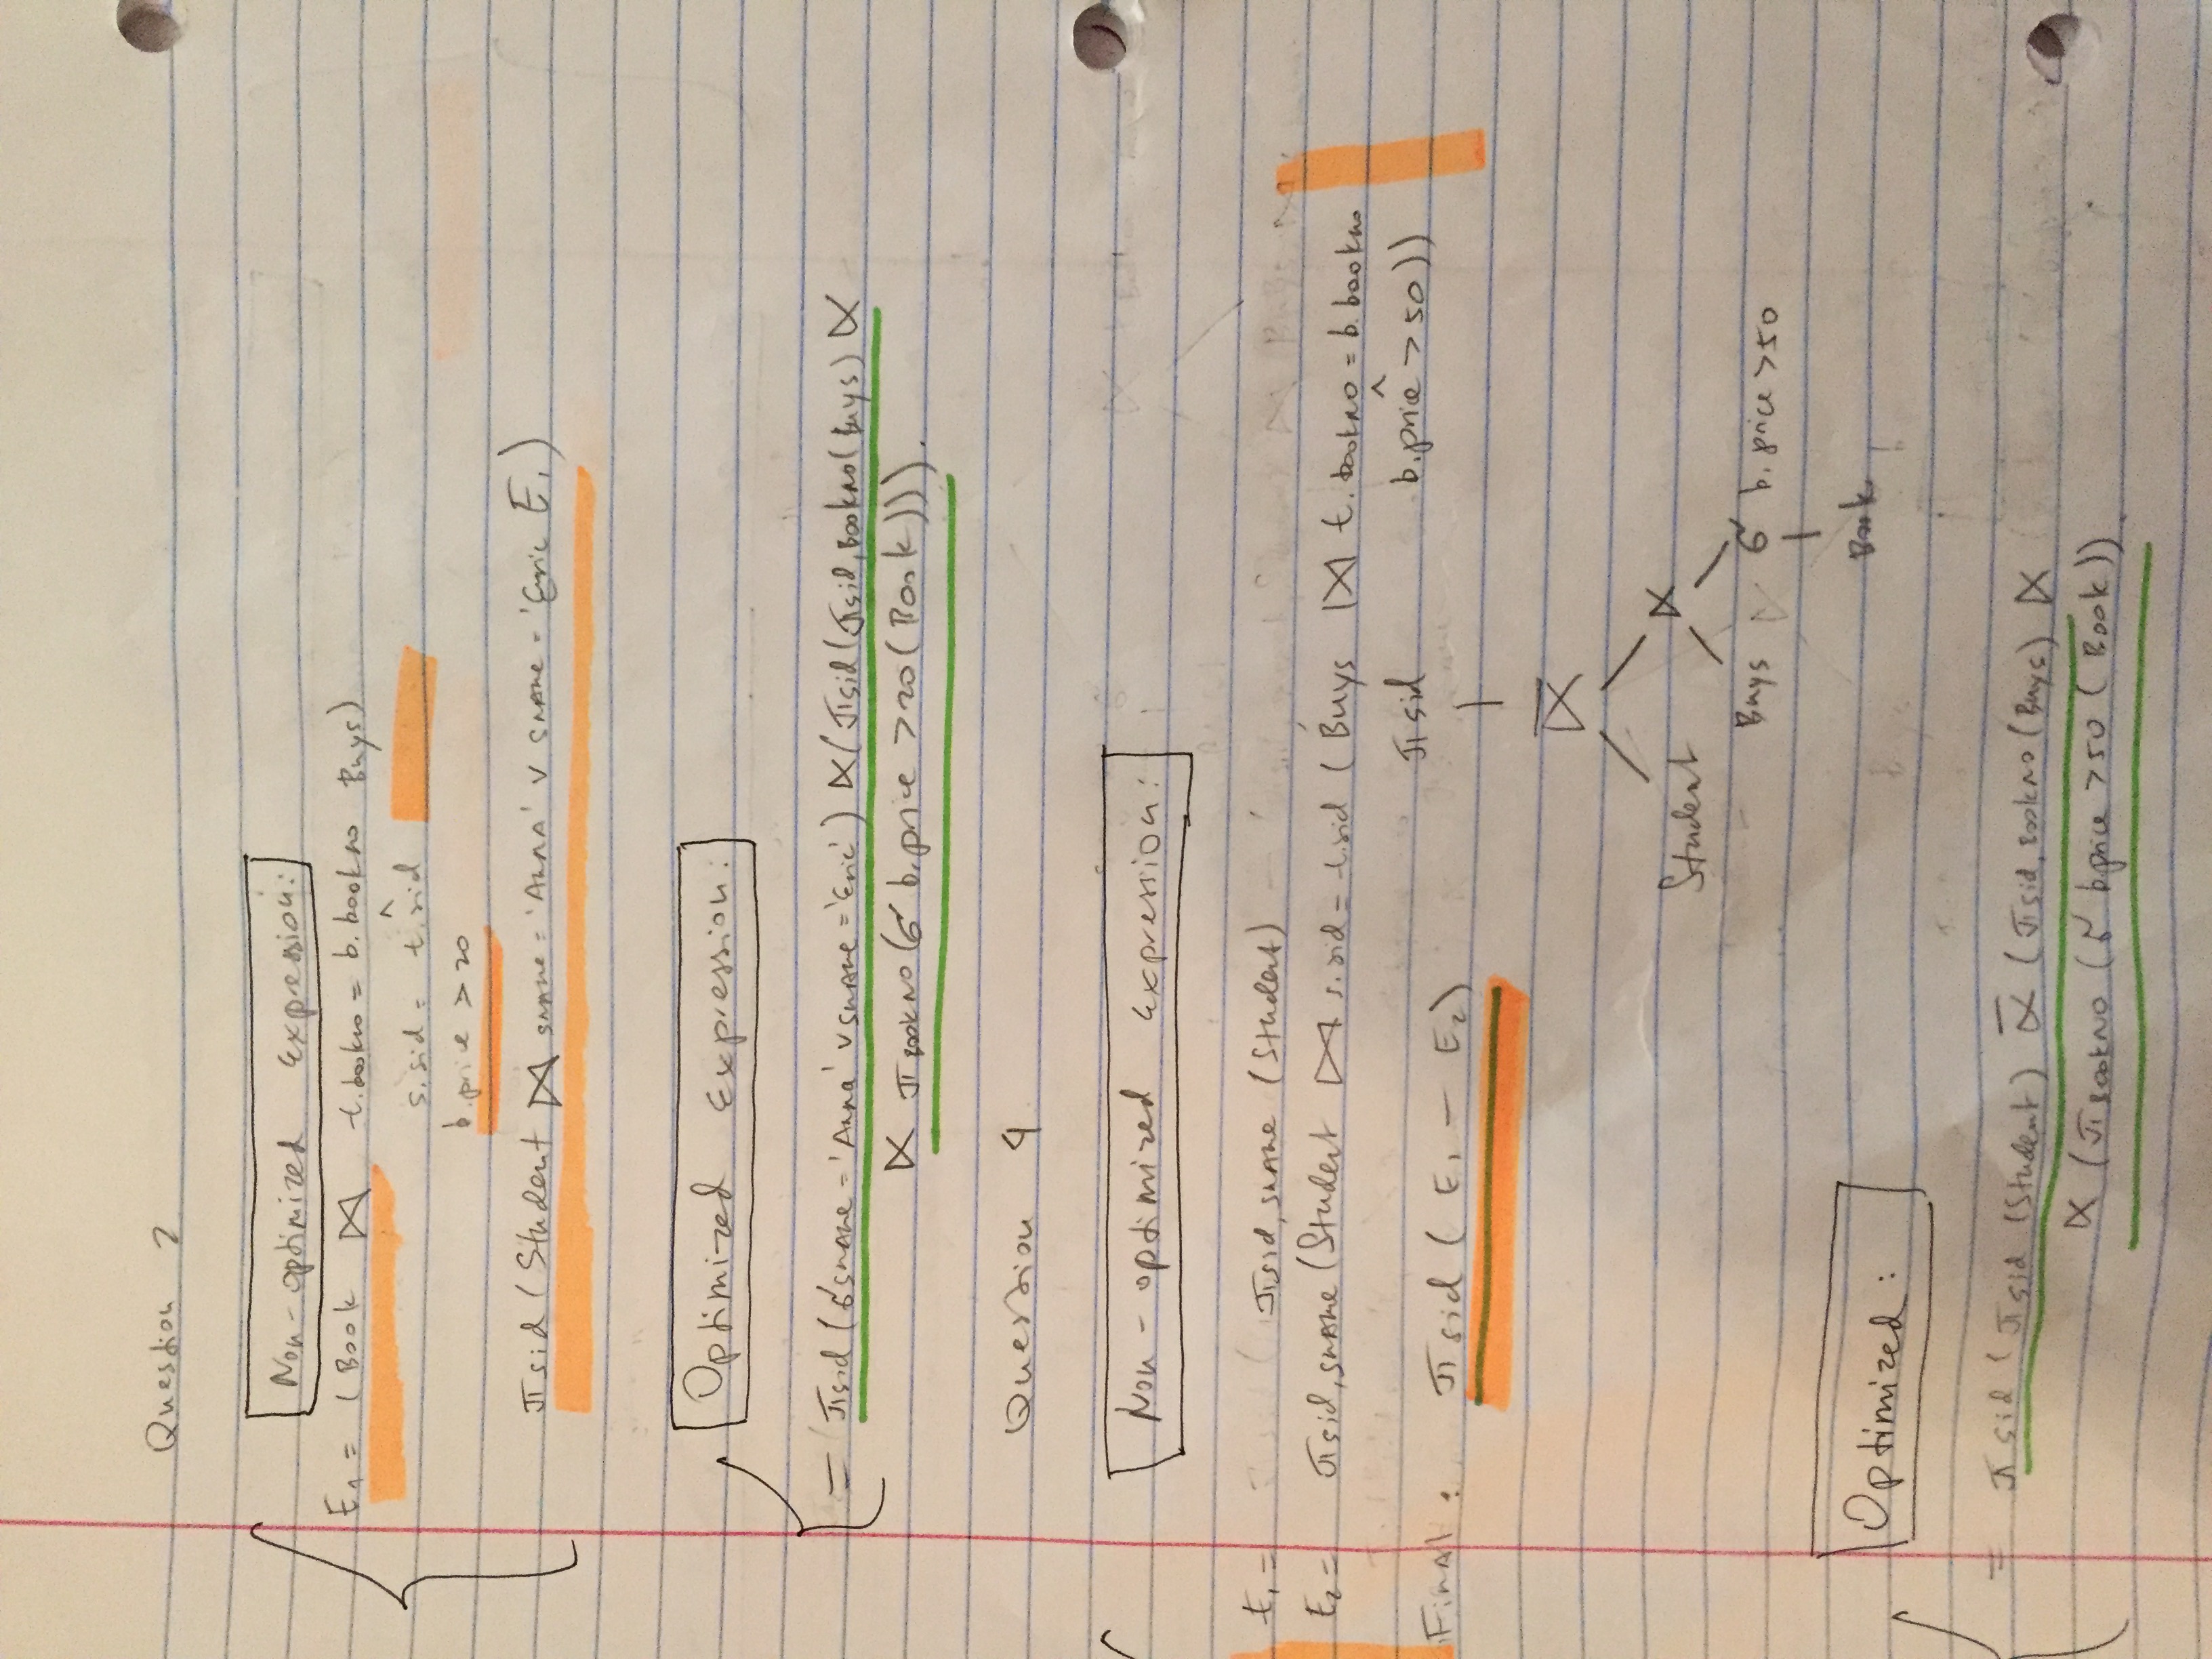 Question 2
Non-optimized Expression:
E₁ = (Book ⋈ t.bookno = b.bookno Buys)
^
s.sid = t.sid
b.price > 20
πsid (Student ⋈ sname = 'Anna' ∨ sname = 'Eric E₁)
Optimized Expression:
= πsid (σsname = 'Anna' ∨ sname = 'Eric') ⋉ (πsid (πsid, BOOKNO (Buys) ⋉
⋉ πBOOKNO (σ b.price > 20 (Book))).
Question 4
Non-optimized Expression:
E₁ = πsid, sname (Student)
E₂ = πsid, sname (Student ⋈ s.sid = t.sid (Buys ⋈ t.bookno = b.bookno
^
b.price > 50))
Final: πsid (E₁ − E₂)
πsid
⋉̅
Student ⋉
Buys σ b.price > 50
Book
Optimized:
= πsid (πsid (Student) ⋉̅ (πsid, BOOKNO (Buys) ⋉
⋉ (πBOOKNO (σ b.price > 50 (Book)).